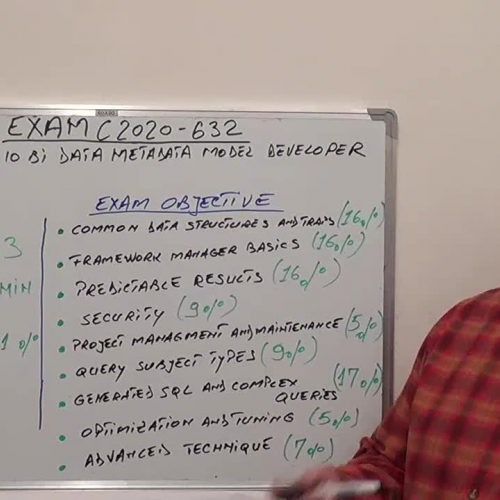 EXAM C2020-632
10 Bi DATA METADATA MODEL DEVELOPER
EXAM OBJECTIVE
3
MIN
1 0/0
• COMMON DATA STRUCTURES AND TRAPS (16 0/0)
• FRAMEWORK MANAGER BASICS (16 0/0)
• PREDICTABLE RESULTS (16 0/0)
• SECURITY (9 0/0)
• PROJECT MANAGMENT AND MAINTENANCE (5 0/0)
• QUERY SUBJECT TYPES (9 0/0)
• GENERATED SQL AND COMPLEX (17 0/0)
QUERIES
• OPTIMIZATION AND TUNING (5 0/0)
• ADVANCED TECHNIQUE (7 0/0)